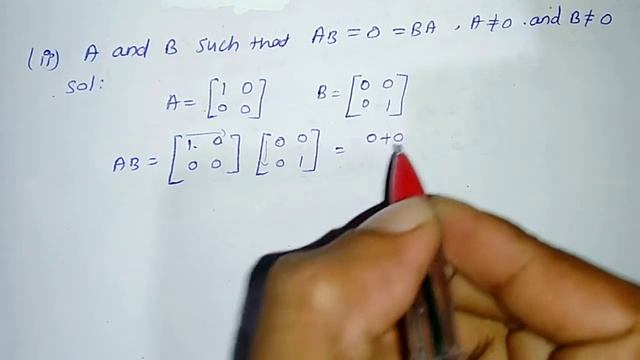 (ii) A and B such that AB = 0 = BA , A ≠ 0 . and B ≠ 0
Sol:
A = [1 0 0 0] B = [0 0 0 1]
AB = [1. 0 0 0] [0 0 0 1] = 0+0